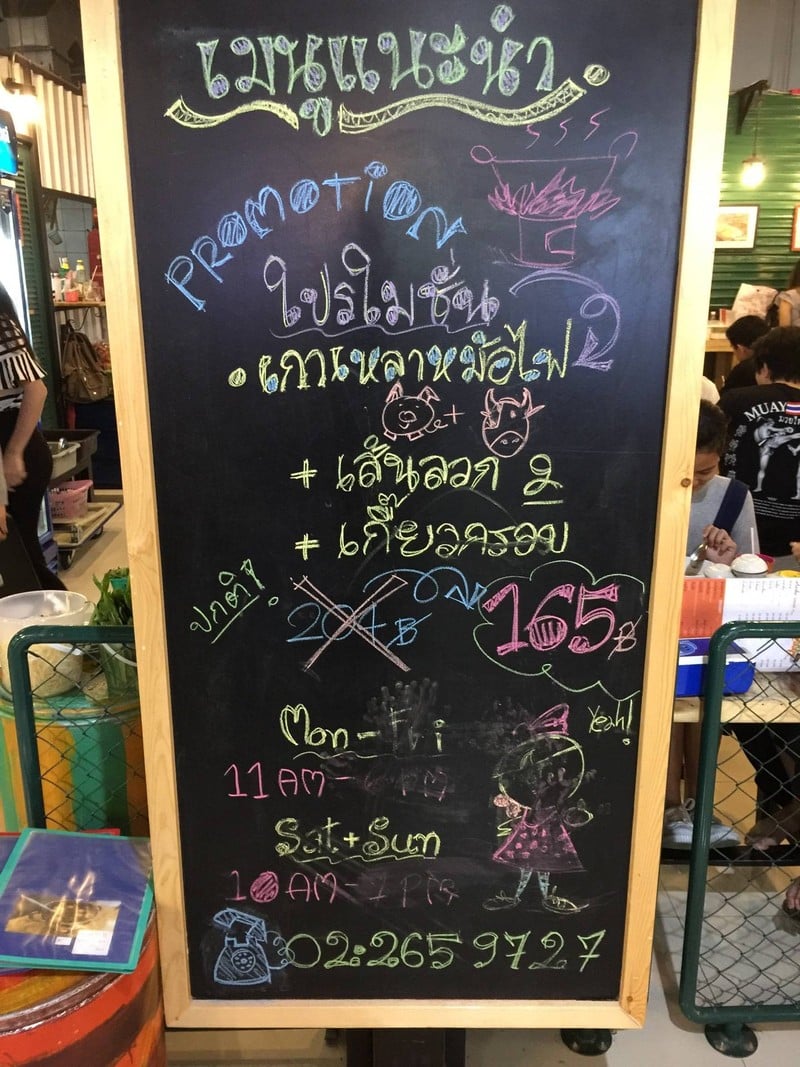 เมนูแนะนำ
PROMOTION
โปรโมชั่น 2
• เกาเหลาหม้อไฟ
+
+ เส้นลวก 2
+ เกี๊ยวกรอบ
ปกติ! 204 ฿ 165 ฿
Yeah!
Mon - Fri
11 AM - PM
Sat + Sun
10 AM - 7 PM
02-265 9727
MUAY